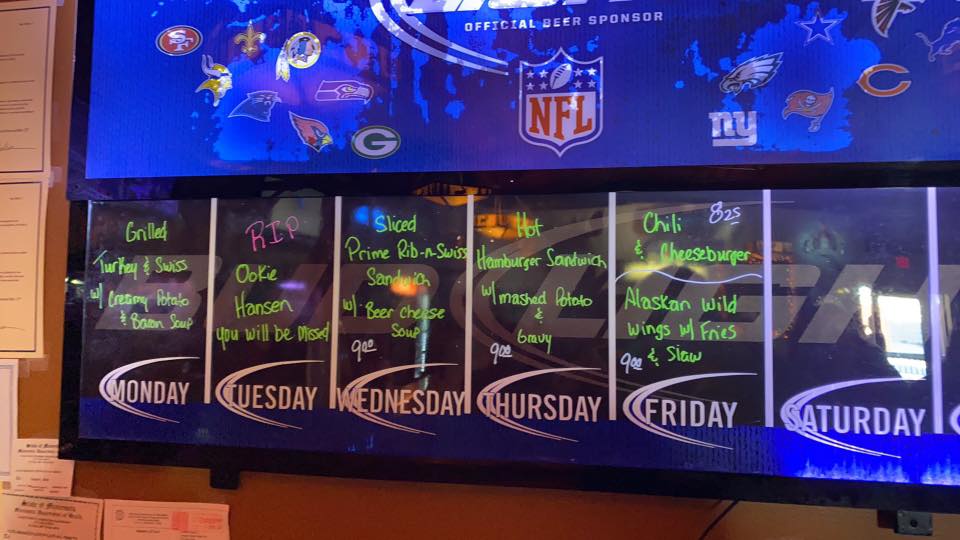 OFFICIAL BEER SPONSOR
NFL
ny
G
Grilled
Turkey & Swiss
w/ Creamy Potato
& Bacon Soup
MONDAY
RIP
Ookie
Hansen
you will be missed
TUESDAY
Sliced
Prime Rib-n-Swiss
Sandwich
w/ Beer cheese
Soup
9.00
WEDNESDAY
Hot
Hamburger Sandwich
w/ mashed Potato
&
Gravy
9.00
THURSDAY
Chili 8.25
& Cheeseburger
Alaskan Wild
Wings w/ Fries
9.00 & Slaw
FRIDAY
SATURDAY
BUD LIGH
State of Minnesota
State of Minnesota